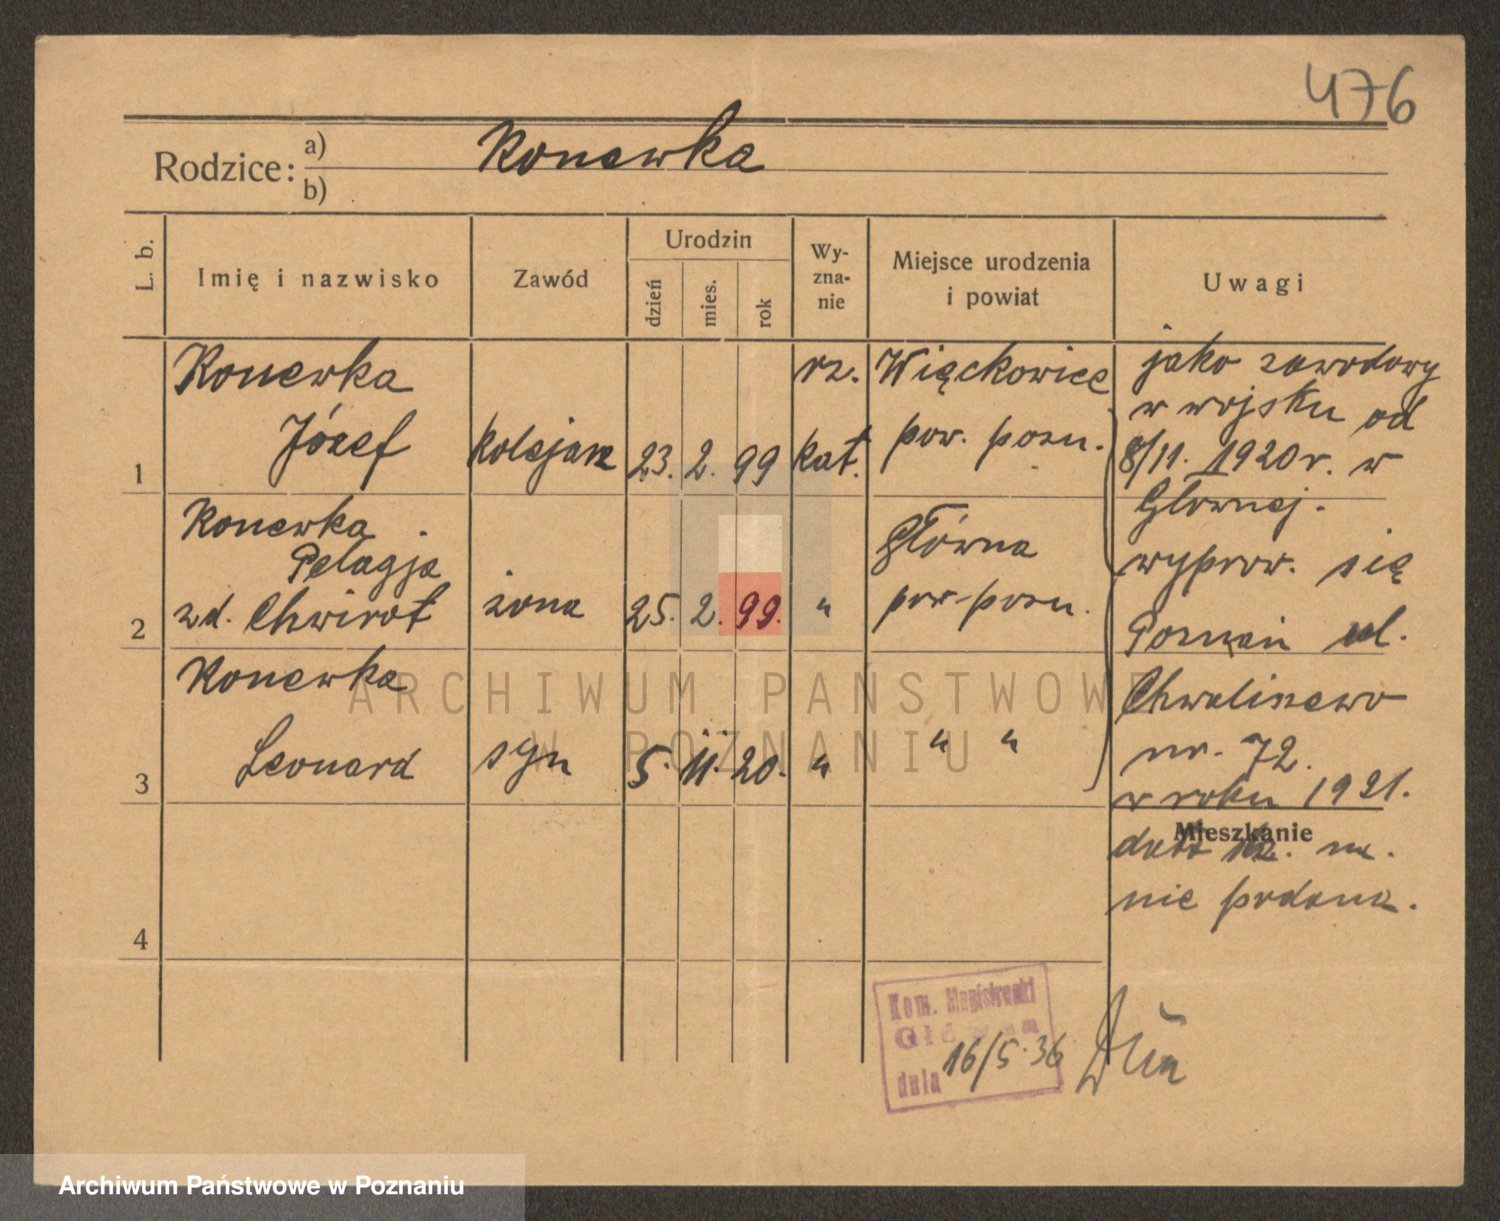 476
Rodzice: a) Konewka
b)
L. b.
Imię i nazwisko
Zawód
Urodzin
dzień
mies.
rok
Wy-
zna-
nie
Miejsce urodzenia
i powiat
Uwagi
1
Konewka
Józef
kolejarz
23. 2. 99
rz.
kat.
Więckowice
pow. pozn.
2
Konewka
Pelagja
zd. Chwirot
żona
25. 2. 99.
"
Główna
pow. pozn.
3
Konewka
Leonard
syn
5. 11. 20.
"
" "
4
jako zawodowy
w wojsku od
8/11. 1920 r. w
Głownej.
wyprow. się
Poznań ul.
Chwaliszewo
nr. 72.
w roku 1921.
Mieszkanie
data
nie podana.
Kom. Magistracki
Główna
dnia 16/5.36
ARCHIWUM PAŃSTWOWE
W POZNANIU
Archiwum Państwowe w Poznaniu